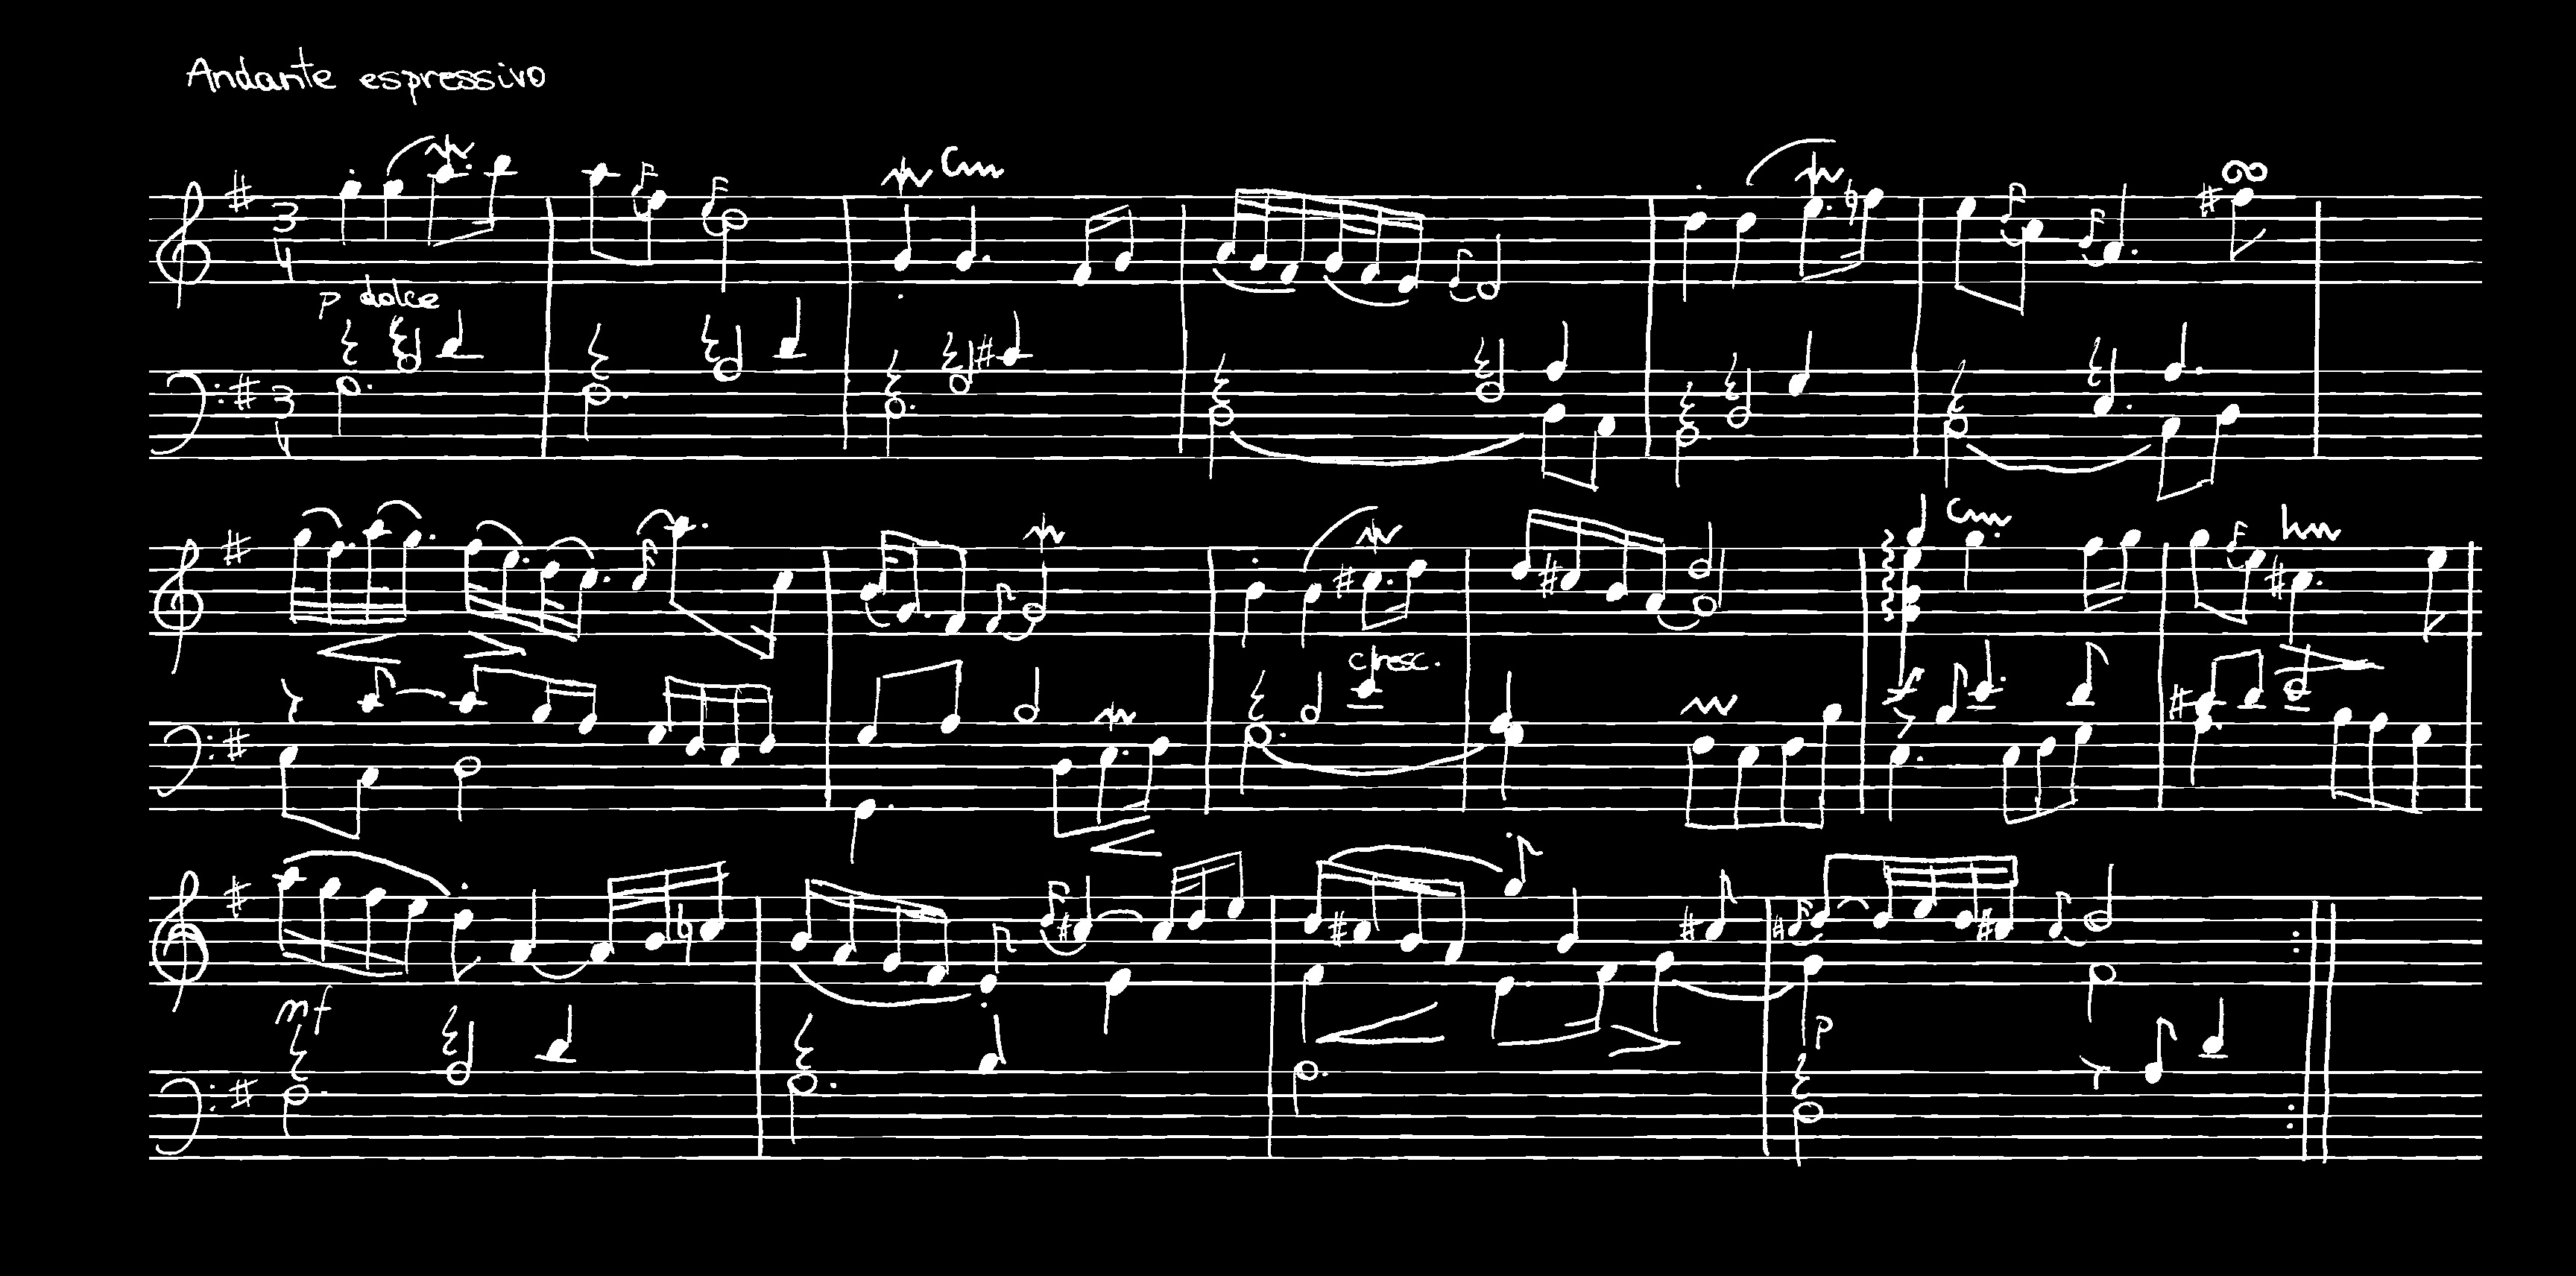 Andante espressivo
3
4
p dolce
3
4
cresc.
mf
p